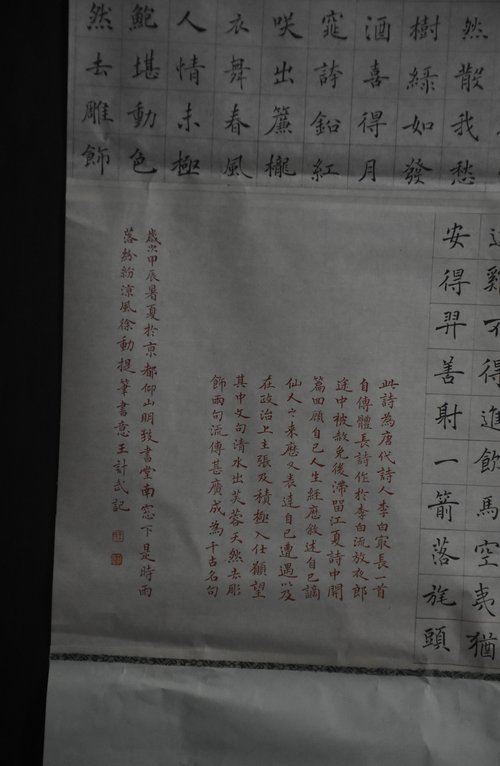 然散我愁
樹綠如發
酒喜得月
窕誇鉛紅
咲出簾櫳
衣舞春風
人情未極
鮑堪動色
然去雕飾
雞不得進飲馬空夷猶
安得羿善射一箭落旄頭
此詩為唐代詩人李白最長一首
自傳體長詩作於李白流放夜郎
途中被赦免後滯留江夏詩中開
篇回顧自己人生經歷敘述自己謫
仙人之来歷又表達自己遭遇以及
在政治上主張及積極入仕願望
其中文句清水出芙蓉天然去彫
飾兩句流傳甚廣成為千古名句
歲次甲辰暑夏於京都仰山明致書堂南窓下是時雨
落紛紛涼風徐動提筆書意王計武記